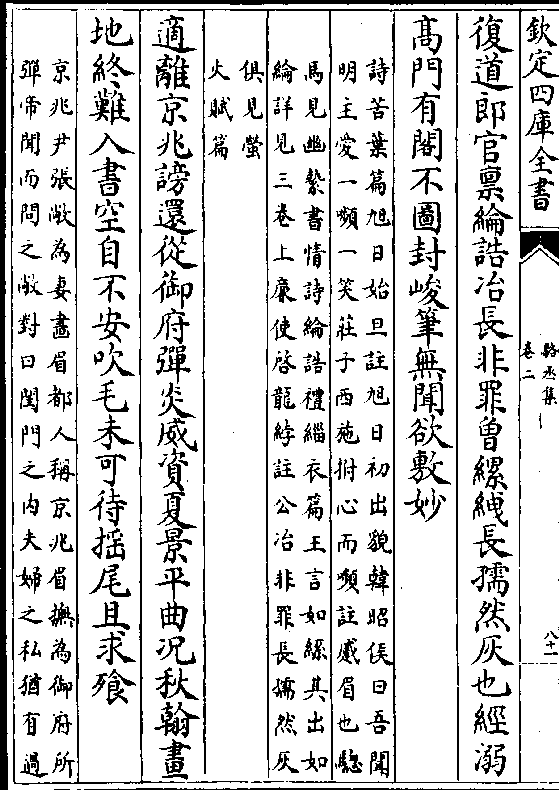 欽定四庫全書
駱丞集
卷二
八十一
復道郎官禀綸誥冶長非罪曾縲絏長孺然灰也經溺
髙門有閣不圖封峻筆無聞欲敷妙
詩苦葉篇旭日始旦註旭日初出貌韓昭侯曰吾聞
明主愛一嚬一笑莊子西施捬心而嚬註蹙眉也驄
馬見幽縶書情詩綸誥禮緇衣篇王言如絲其出如
綸詳見三卷上㢘使啓龍綍註公冶非罪長孺然灰
俱見螢
火賦篇
適離京兆謗還從御府彈炎威資夏景平曲况秋翰畫
地終難入書空自不安吹毛未可待揺尾且求飱
京兆尹張敞為妻畫眉都人稱京兆眉撫為御府所
彈帝聞而問之敞對曰閨門之内夫婦之私猶有過